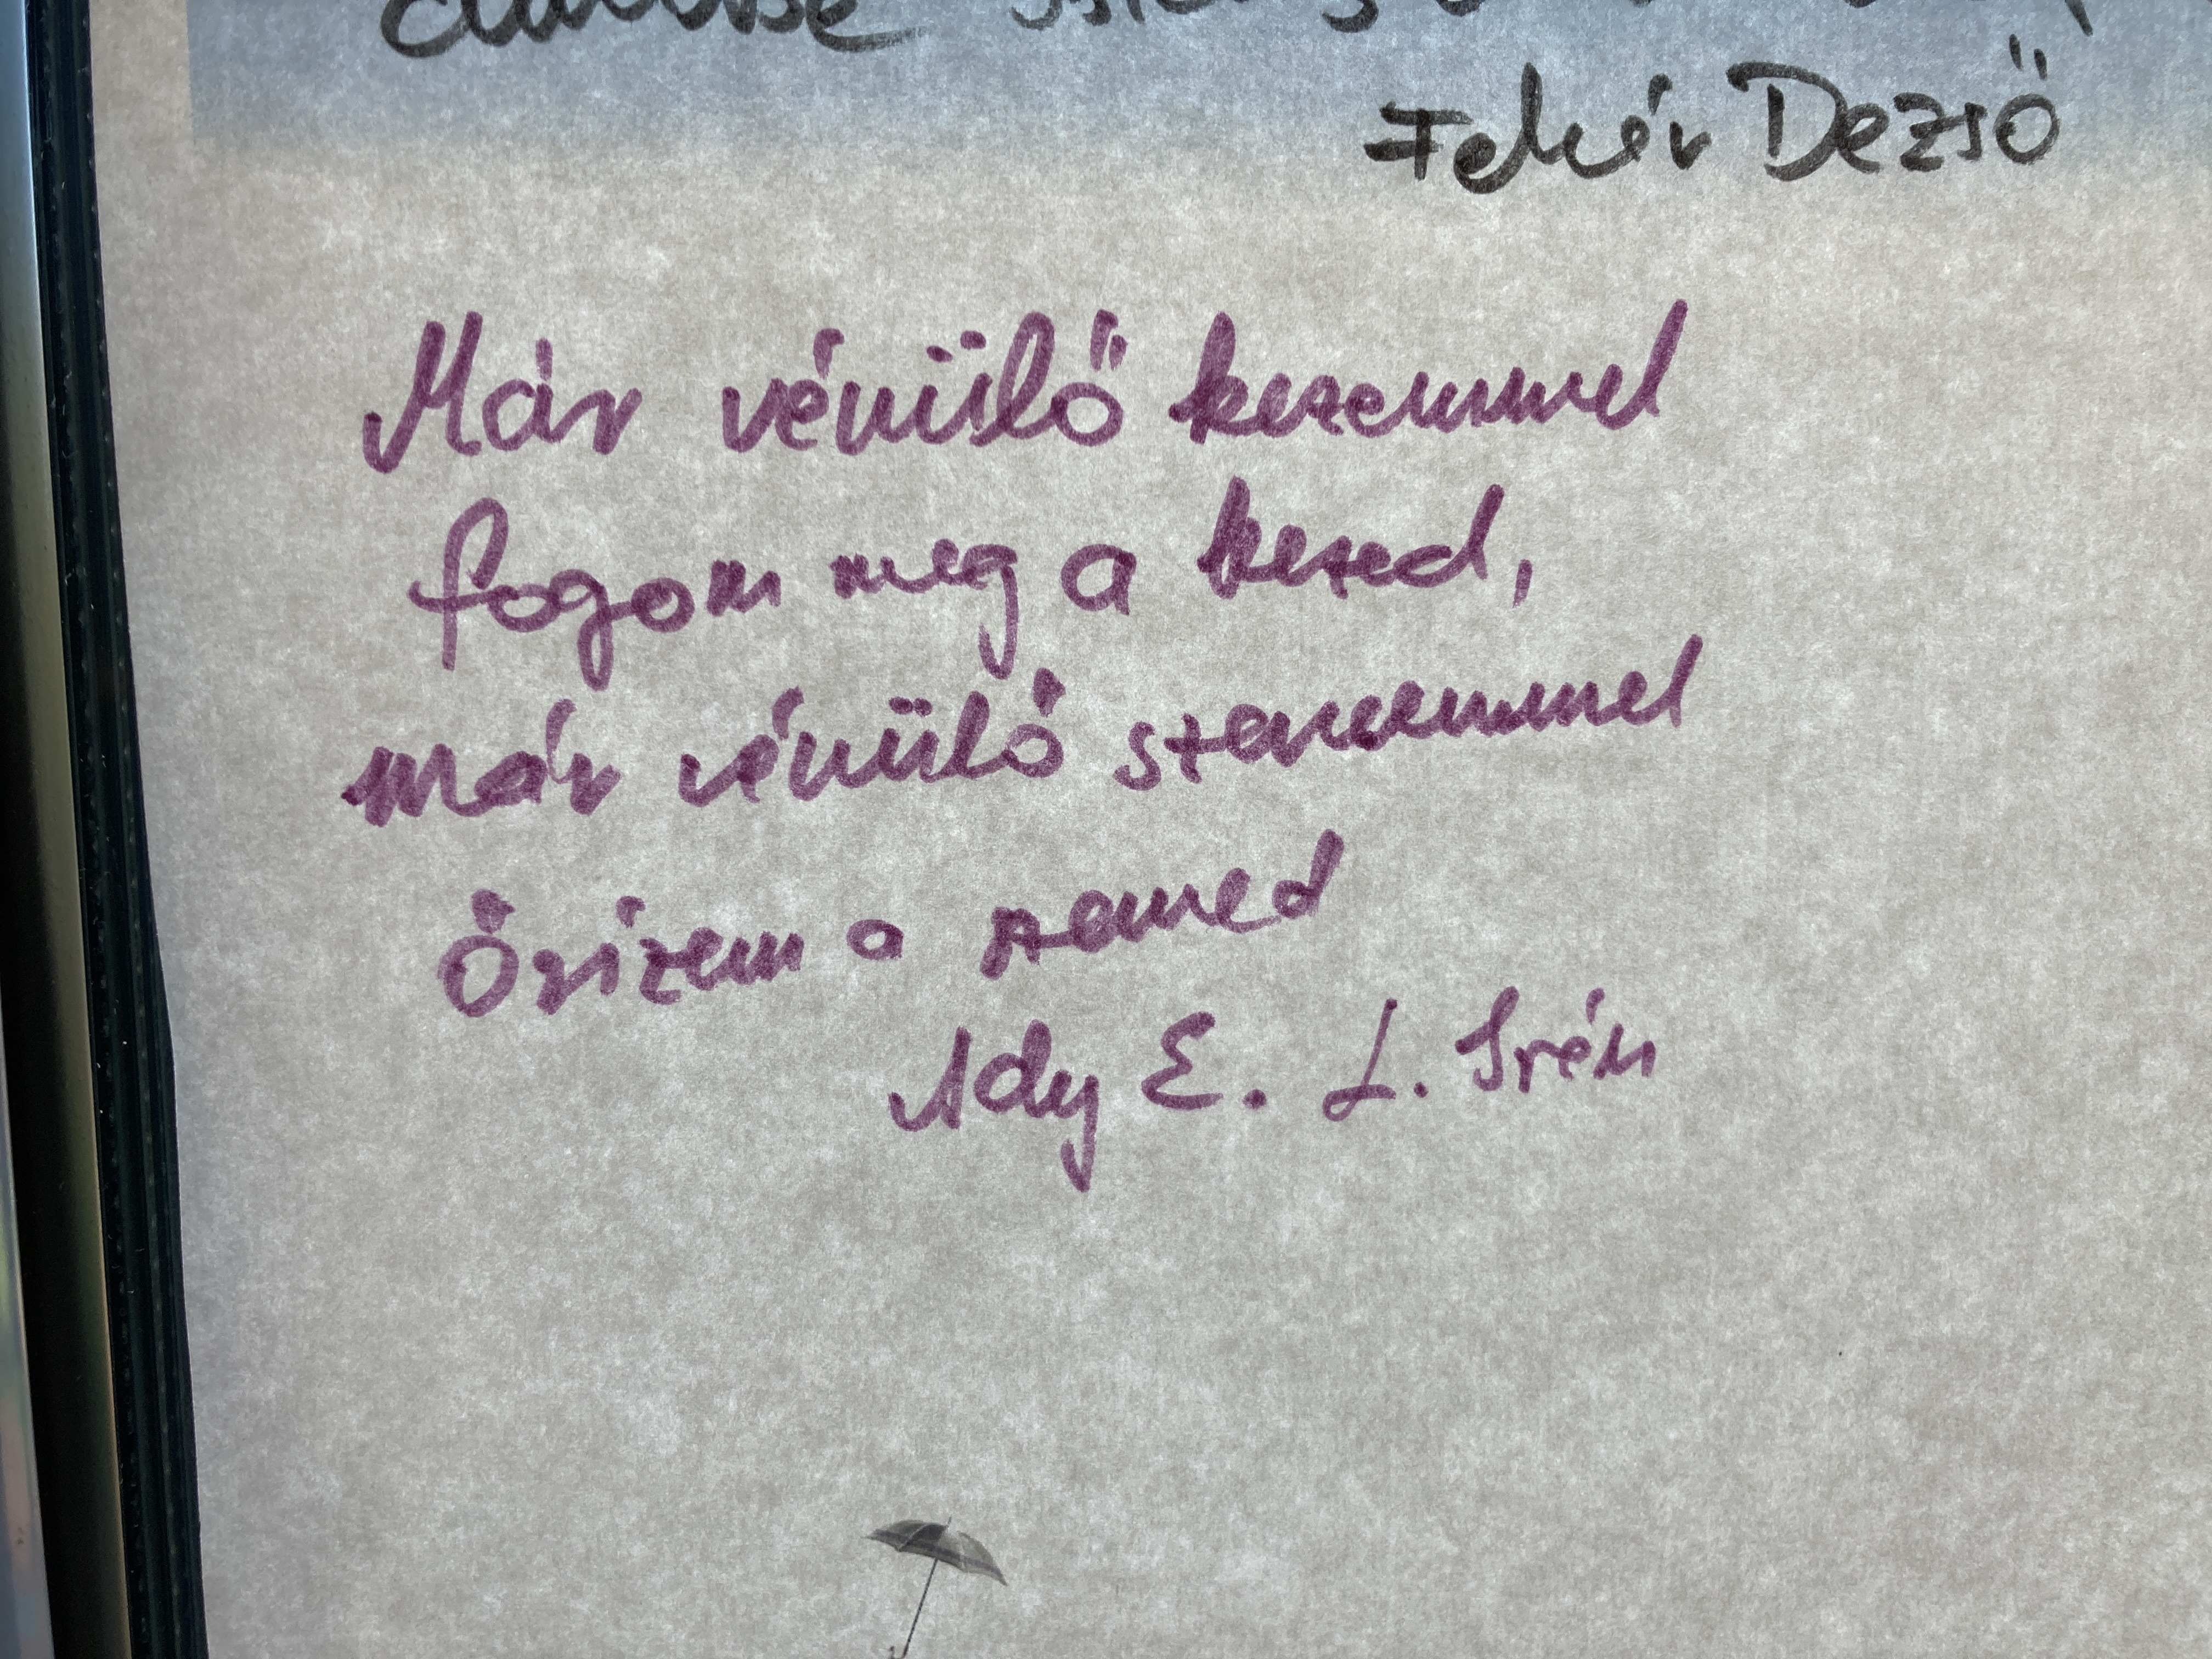 Fehér Dezső
Már vénülő kezemmel
fogom meg a kezed,
már vénülő szememmel
Őrizem a szemed
Ady E. L. Irén